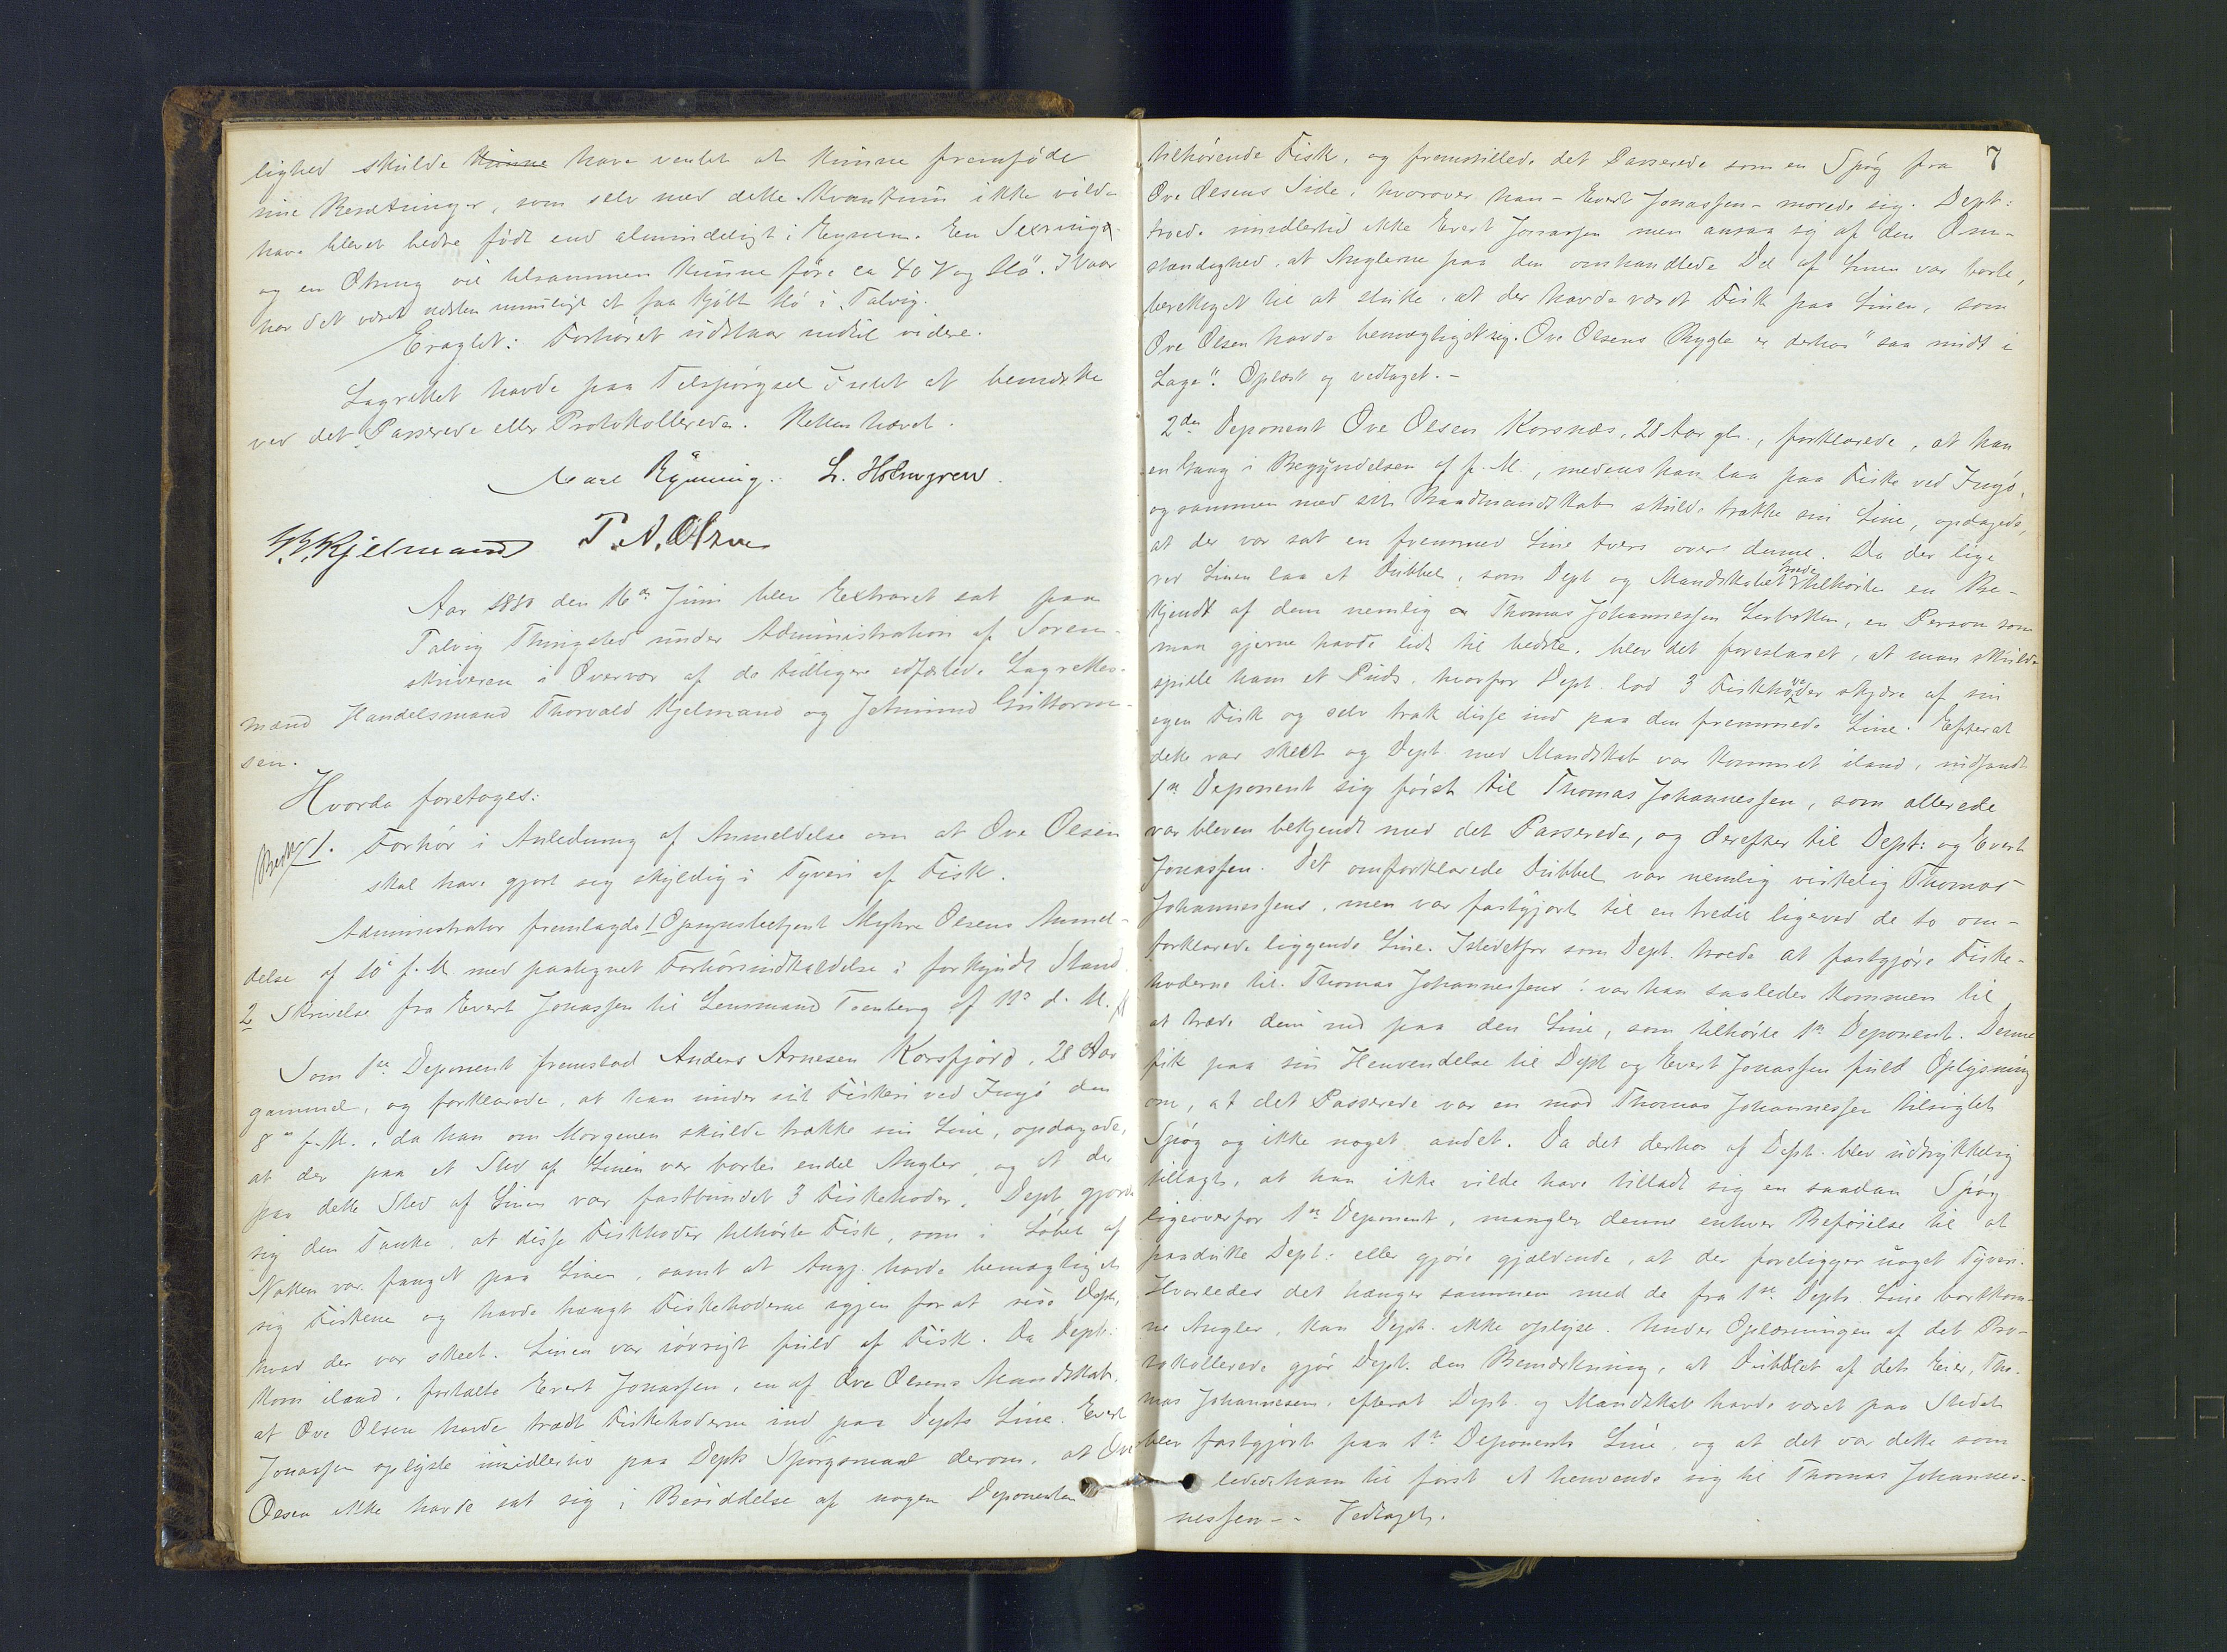 lighed skulde kunne have ventet at kunne fremføde
sine Besætninger, som selv med dette Kvantum ikke vilde
have blevet bedre födt end almindeligt i Egnen. En Sexring
og en Otring vil tilsammen kunne före ca 40 V og Hö". I Vaar
har det været næsten umuligt at faa kjöbt Hö i Talvig.
Eragtet: Forhöret udstaar indtil videre.
Lagrettet havde paa Tilspörgsel Intet at bemærke
ved det Passerede eller Protokollerede. Retten hævet.
Carl Rynning. L. Holmgren.
Th. Kjelmand P. A. Olsen
Aar 1880 den 16de Juni blev Extraret sat paa
Talvig Thingsted under Administration af Soren-
skriveren i Overvær af de tidligere edfæstede Lagrettes-
mænd Handelsmand Thorvald Kjelmand og Jetmund Guttorm-
sen.
Hvorda foretoges:
1. Forhör i Anledning af Anmeldelse om at Ove Olsen
skal have gjort sig skyldig i Tyveri af Fisk.
Administrator fremlagde 1 Opsynsbetjent Myhre Olsens Anmel-
delse af 10de f. M. med paategnet Forhörsindkaldelse i forkyndt Stand
2 Skrivelse fra Evert Jonassen til Lensmand Tornberg af 11te d. M.
Som 1ste Deponent fremstod Anders Arnesen Korsfjord, 28 Aar
gammel, og forklarede, at han under sit Fiskeri ved Ingö den
8de f. M., da han om Morgenen skulde trække sin Line, opdagede,
at der paa et Sted af Linen var borte endel Angler, og at der
paa dette Sted af Linen var fastbundet 3 Fiskehoder. Dept. gjorde
sig den Tanke, at disse Fiskhoder tilhörte Fisk, som i Löbet af
Natten var fanget paa Linen, samt at Angj. havde bemægtiget
sig Fiskene og havde hængt Fiskehoderne igjen for at vise Dept,
hvad der var skeet. Linen var iövrigt fuld af Fisk. Da Dept:
kom iland, fortalte Evert Jonassen, en af Ove Olsens Mandskab,
at Ove Olsen havde trædt Fiskehoderne ind paa Depts Line. Evert
Jonassen oplyste imidlertid paa Depts Spörgsmaal derom, at Ove
Olsen ikke havde sat sig i Besiddelse af nogen Deponenten
7
tilhörende Fisk, og fremstillede det Passerede som en Spög fra
Ove Olsens Side, hvorover han - Evert Jonassen - morede sig. Dept:
troede imidlertid ikke Evert Jonassen men ansaa sig af den Om-
stændighed, at Anglerne paa den omhandlede Del af Linen var borte,
berettiget til at slutte, at der havde været Fisk paa Linen, som
Ove Olsen havde bemægtiget sig. Ove Olsens Rygte er derhos "saa midt i
Laget". Oplæst og vedtaget. -
2den Deponent Ove Olsen Korsnæs, 28 Aar gl., forklarede, at han
en Gang i Begyndelsen af f. M., medens han laa paa Fiske ved Ingö,
og sammen med sit Baadmandskab skulde trække sin Line, opdagede,
at der var sat en fremmed Line tvers over denne. Da der lige
ved Linen laa et Dubbel, som Dept og Mandskabet troede tilhörte en Be-
kjendt af dem nemlig Thomas Johannessen Lerbakken, en Person som
man gjerne havde lidt til bedste, blev det foreslaaet, at man skulde
spille ham et Puds, hvorfor Dept. lod 3 Fiskhoder skjære af sin
egen Fisk og selv trak disse ind paa den fremmede Line. Efterat
dette var skeet og Dept. med Mandskab var kommet iland, indfandt
1ste Deponent sig först til Thomas Johannessen, som allerede
var bleven bekjendt med det Passerede, og derefter til Dept: og Evert
Jonassen. Det omforklarede Dubbel var nemlig virkelig Thomas
Johannessens, men var fastgjort til en tredie ligeved de to om-
forklarede liggende Line. Istedetfor som Dept. troede at fastgjöre Fiske-
hoderne til Thomas Johannessens: var han saaledes kommen til
at træde dem ind paa den Line, som tilhörte 1ste Deponent. Denne
fik paa sin Henvendelse til Dept og Evert Jonassen fuld Oplysning
om, at det Passerede var en mod Thomas Johannessen tilsigtet
Spög og ikke noget andet. Da det derhos af Dept. blev udtrykkelig
tillagt, at han ikke vilde have tilladt sig en saadan Spög
ligeoverfor 1ste Deponent, mangler denne enhver Beföielse til at
paadutte Dept: eller gjöre gjældende, at der foreligger noget Tyveri.
Hvorledes det hænger sammen med de fra 1ste Depts Line bortkom-
ne Angler, kan Dept. ikke oplyse. Under Oplæsningen af det Pro-
tokollerede gjör Dept. den Bemærkning, at Dubblet af dets Eier, Tho-
mas Johannesen, efterat Dept. og Mandskab havde været paa Stedet
blev fastgjort paa 1ste Deponents Line, og at det var dette som
ledede ham til först at henvende sig til Thomas Johannes-
nessen - - Vedtaget.